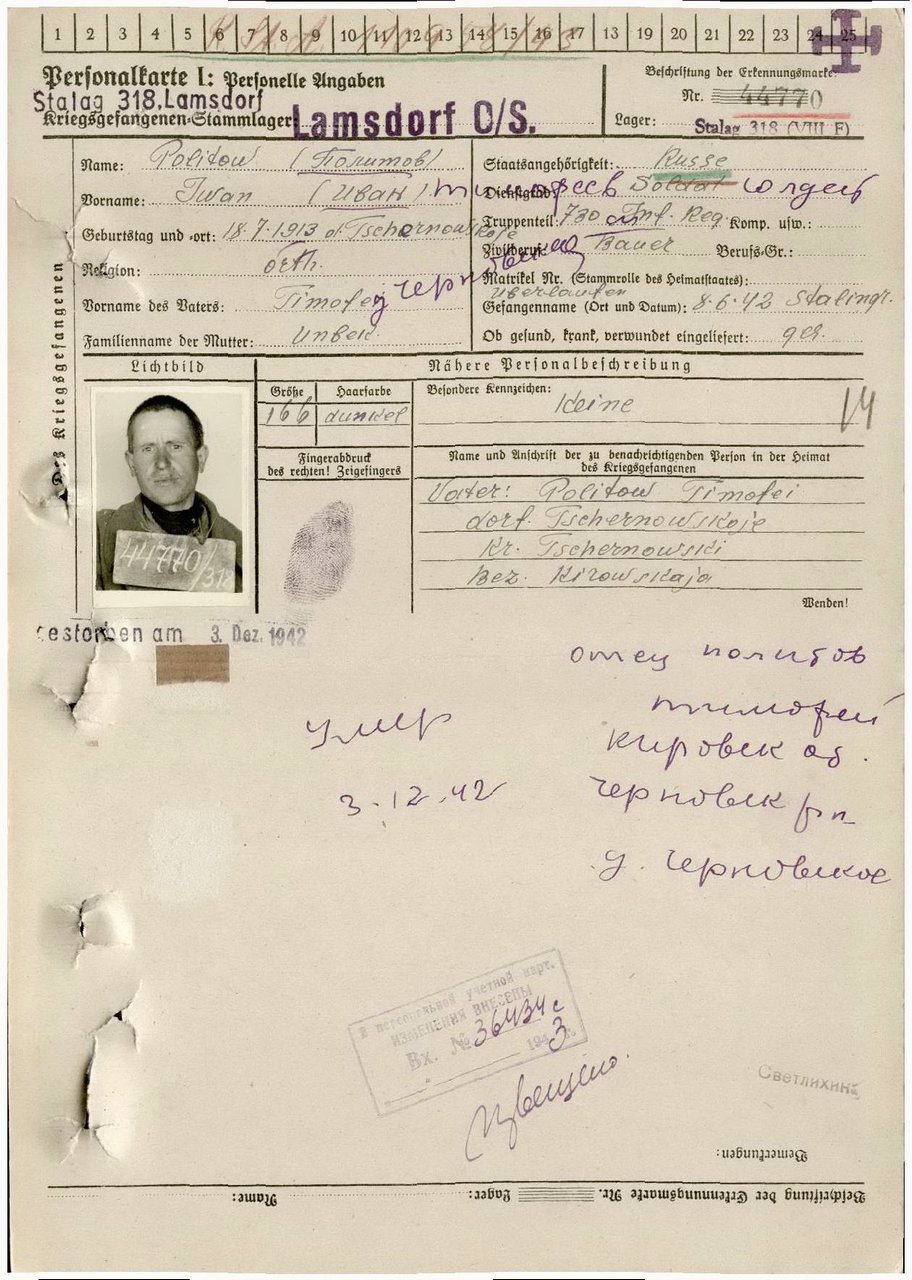 1 2 3 4 5 6 7 8 9 10 11 12 13 14 15 16 17 13 19 20 21 22 23 24 25
Personalkarte I: Personelle Angaben
Stalag 318, Lamsdorf
Kriegsgefangenen-Stammlager: Lamsdorf O/S.
Beschriftung der Erkennungsmarke
Nr. 44770
Lager: Stalag 318 (VIII F)
Des Kriegsgefangenen
Name: Politow (Политов)
Vorname: Iwan (Иван) тимофеев
Geburtstag und -ort: 18.7.1913 Tschernowskoje
Religion: orth.
Vorname des Vaters: Timofei
д черновское
Familienname der Mutter: Unbek.
Staatsangehörigkeit: Russe
Dienstgrad: Soldat солдат
Truppenteil: 730 Inf. Reg. Komp. usw.:
Zivilberuf: Bauer Berufs-Gr.:
Matrikel Nr. (Stammrolle des Heimatstaates):
überlaufen
Gefangenname (Ort und Datum): 8.6.42 Stalingr.
Ob gesund, krank, verwundet eingeliefert: ges.
Lichtbild
Nähere Personalbeschreibung
Größe Haarfarbe
166 dunkel
Besondere Kennzeichen:
Keine
14
Fingerabdruck
des rechten! Zeigefingers
Name und Anschrift der zu benachrichtigenden Person in der Heimat
des Kriegsgefangenen
Vater: Politow Timofei
dorf. Tschernowskoje
Kr. Tschernowski
Bez. Kirowskaja
Wenden!
44770/318
gestorben am 3. Dez. 1942
отец политов
тимофей
Кировск об.
черновск рн
д. черновское
умер
3.12.42
В персональной учетной карт.
ИЗМЕНЕНИЯ ВНЕСЕНЫ
Вх. № 36434с
1943 г.
Извещено.
Светлихина
Bemerkungen:
Name: Lager: Beschriftung der Erkennungsmarke Nr.